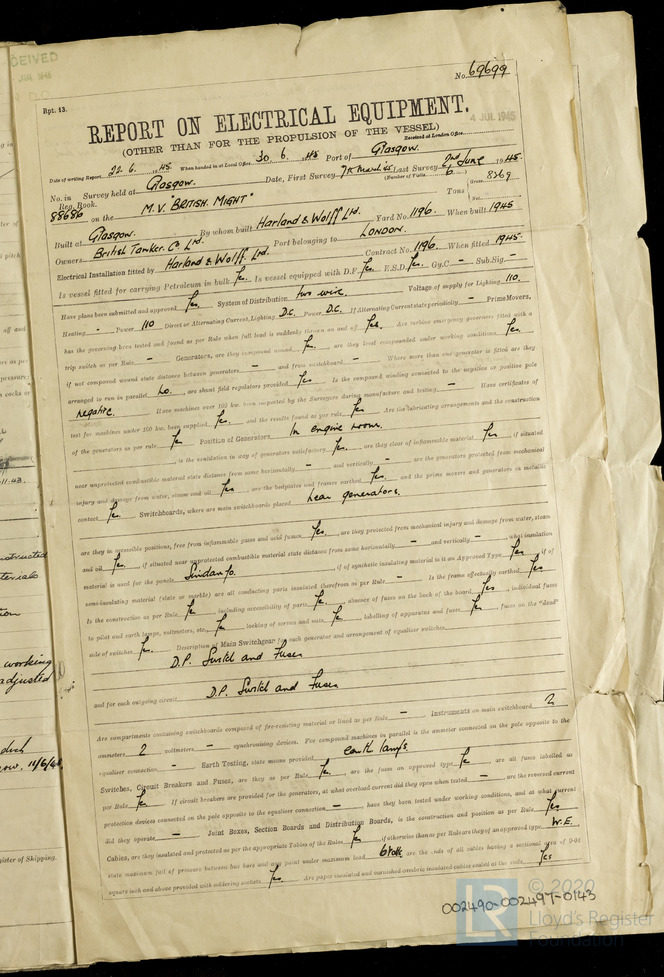 No. 69699
Rpt. 13.
4 JUL 1945
REPORT ON ELECTRICAL EQUIPMENT.
(OTHER THAN FOR THE PROPULSION OF THE VESSEL)
Received at London Office
Date of writing Report 22.6.45. When handed in at Local Office 30.6.45 Port of Glasgow.
No. in Reg. Book. Survey held at Glasgow. Date, First Survey 7th March '45 Last Survey 2nd June 1945.
(Number of Visits 6)
88686 on the M.V. "BRITISH MIGHT" Tons Gross 8269 Net
Built at Glasgow. By whom built Harland & Wolff Ltd. Yard No. 1196. When built 1945
Owners British Tanker Co Ltd. Port belonging to LONDON.
Electrical Installation fitted by Harland & Wolff. Ltd. Contract No. 1196. When fitted 1945.
Is vessel fitted for carrying Petroleum in bulk Yes. Is vessel equipped with D.F. Yes. E.S.D. Yes. Gy.C. – Sub.Sig. –
Have plans been submitted and approved Yes. System of Distribution two wire. Voltage of supply for Lighting 110.
Heating - Power 110 Direct or Alternating Current, Lighting D.C. Power D.C. If Alternating Current state periodicity – Prime Movers,
has the governing been tested and found as per Rule when full load is suddenly thrown on and off Yes. Are turbine emergency governors fitted with a
trip switch as per Rule – Generators, are they compound wound Yes. are they level compounded under working conditions Yes.
if not compound wound state distance between generators – and from switchboard – Where more than one generator is fitted are they
arranged to run in parallel No. are shunt field regulators provided Yes. Is the compound winding connected to the negative or positive pole
negative. Have machines over 100 kw. been inspected by the Surveyors during manufacture and testing – Have certificates of
test for machines under 100 kw. been supplied Yes. and the results found as per rule Yes Are the lubricating arrangements and the construction
of the generators as per rule Yes Position of Generators In engine room.
is the ventilation in way of generators satisfactory Yes. are they clear of inflammable material Yes if situated
near unprotected combustible material state distance from same horizontally – and vertically – are the generators protected from mechanical
injury and damage from water, steam and oil Yes are the bedplates and frames earthed Yes. and the prime movers and generators in metallic
contact Yes. Switchboards, where are main switchboards placed near generators.
are they in accessible positions, free from inflammable gases and acid fumes Yes. are they protected from mechanical injury and damage from water, steam
and oil Yes. if situated near unprotected combustible material state distance from same horizontally – and vertically – what insulation
material is used for the panels Sindanyo. if of synthetic insulating material is it an Approved Type Yes if of
semi-insulating material (slate or marble) are all conducting parts insulated therefrom as per Rule – Is the frame effectually earthed Yes
Is the construction as per Rule Yes including accessibility of parts Yes. absence of fuses on the back of the board Yes individual fuses
to pilot and earth lamps, voltmeters, etc. Yes locking of screws and nuts Yes labelling of apparatus and fuses Yes fuses on the "dead"
side of switches Yes. Description of Main Switchgear for each generator and arrangement of equaliser switches
D.P. Switch and Fuses
and for each outgoing circuit D.P. Switch and Fuses
Are compartments containing switchboards composed of fire-resisting material or lined as per Rule – Instruments on main switchboard 2
ammeters 2 voltmeters – synchronising devices. For compound machines in parallel is the ammeter connected on the pole opposite to the
equaliser connection – Earth Testing, state means provided earth lamps
Switches, Circuit Breakers and Fuses, are they as per Rule Yes. are the fuses an approved type Yes are all fuses labelled as
per Rule Yes If circuit breakers are provided for the generators, at what overload current did they open when tested – are the reversed current
protection devices connected on the pole opposite to the equaliser connection – have they been tested under working conditions, and at what current
did they operate – Joint Boxes, Section Boards and Distribution Boards, is the construction and position as per Rule Yes
Cables, are they insulated and protected as per the appropriate Tables of the Rules Yes if otherwise than as per Rules are they of an approved type W.E.
state maximum fall of pressure between bus bars and any point under maximum load 6 volts are the ends of all cables having a sectional area of 0·04
square inch and above provided with soldering sockets Yes. Are paper insulated and varnished cambric insulated cables sealed at the ends Yes
002490-002497-0143
LR
© 2020
Lloyd's Register
Foundation